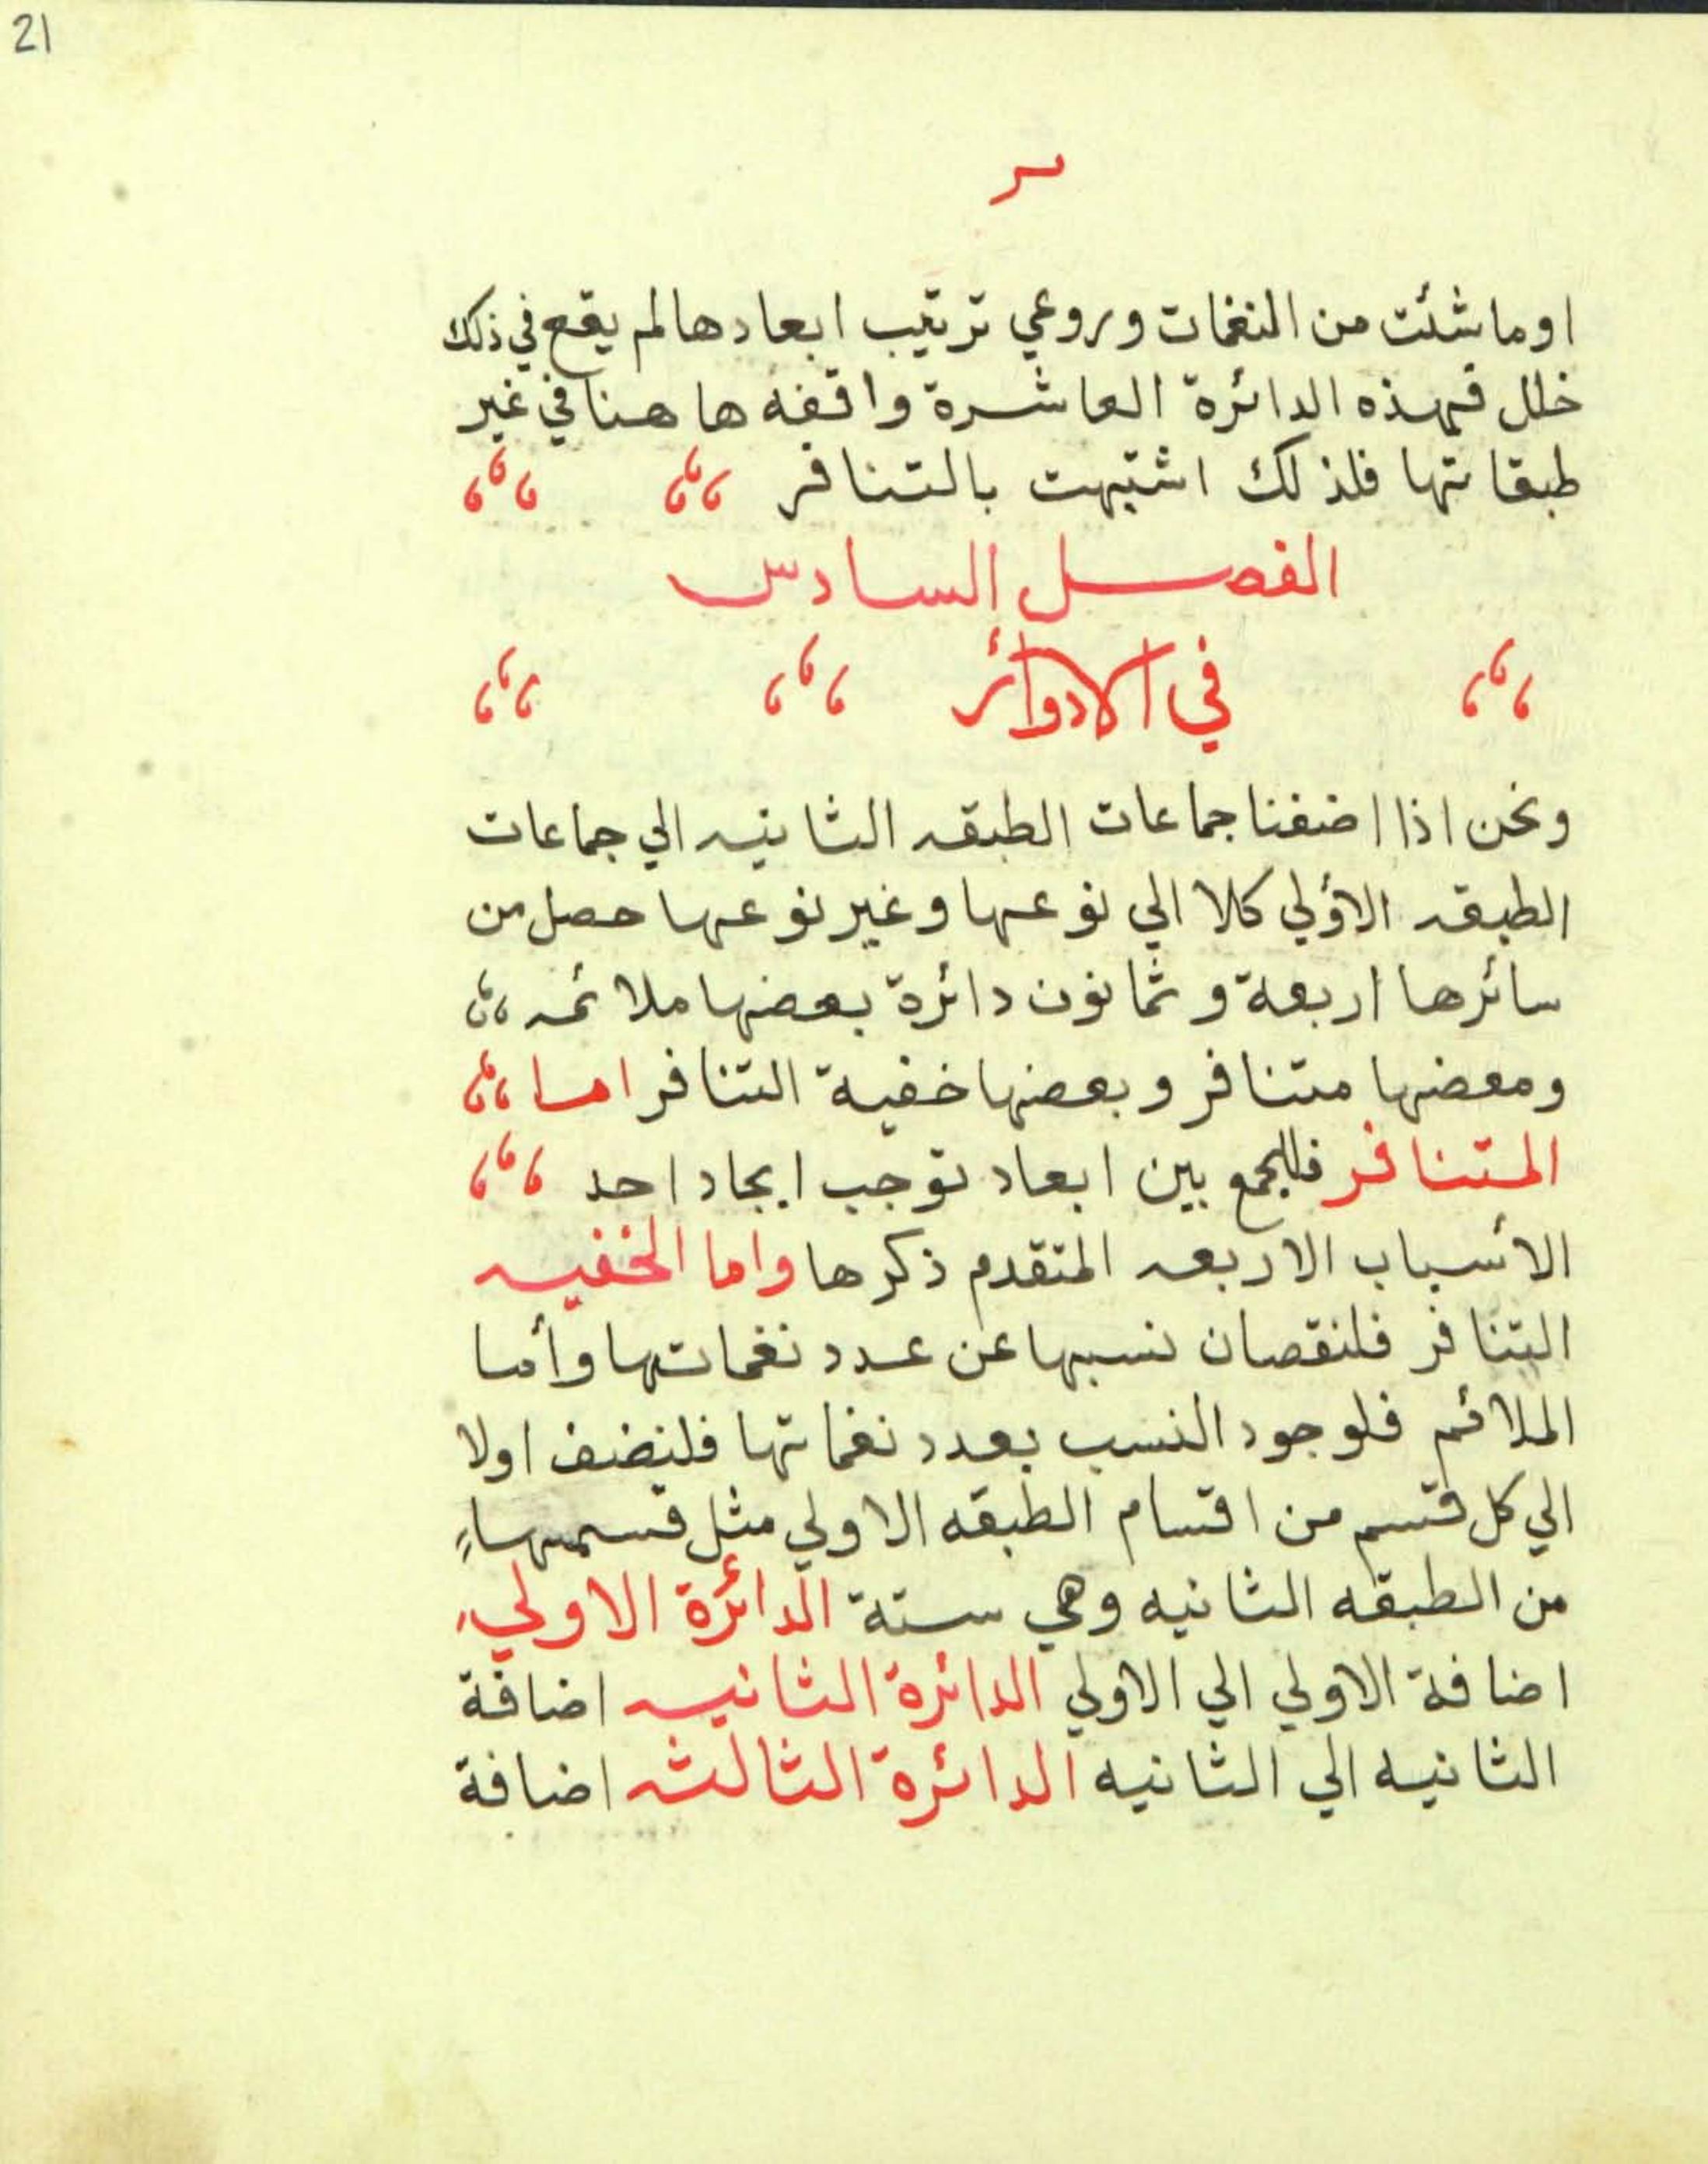 21
اوما شئت من النغمات وروعي ترتيب ابعادها لم يقع في ذلك
خلل فهذه الدائرة العاشرة واقفه هاهنا في غير
طبقاتها فلذلك اشتبهت بالتنافر
الفصل السادس
في الادوائر
ونحن اذا اضفنا جماعات الطبقه الثانيه الي جماعات
الطبقه الأولي كلا الي نوعها وغير نوعها حصل من
سائرها اربعة وثمانون دائرة بعضها ملائمه
ومعضها متنافر وبعضها خفية التنافر اما
المتنافر فللجمع بين ابعاد توجب ايجاد احد
الأسباب الاربعه المتقدم ذكرها واما الخفيه
التنافر فلنقصان نسبها عن عدد نغماتها وأما
الملائم فلوجود النسب بعدد نغماتها فلنضف اولا
الي كل قسم من اقسام الطبقه الاولي مثل قسمها
من الطبقه الثانيه وهي ستة الدائرة الاولي
اضافة الاولي الي الاولي الدائرة الثانيه اضافة
الثانيه الي الثانيه الدائرة الثالثه اضافة